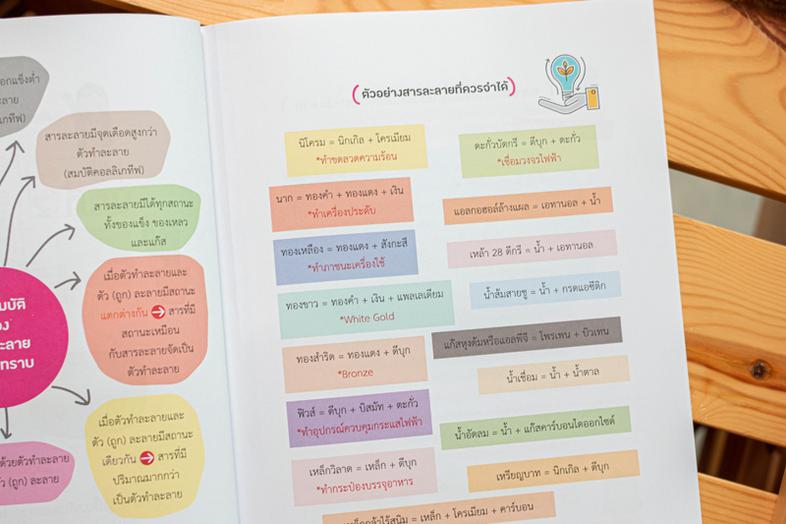 อกแข็งต่ำ
ะลาย
เกทีฟ)
สารละลายมีจุดเดือดสูงกว่า
ตัวทำละลาย
(สมบัติคอลลิเกทีฟ)
สารละลายมีได้ทุกสถานะ
ทั้งของแข็ง ของเหลว
และแก๊ส
เมื่อตัวทำละลายและ
ตัว (ถูก) ละลายมีสถานะ
แตกต่างกัน ➔ สารที่มี
สถานะเหมือน
กับสารละลายจัดเป็น
ตัวทำละลาย
มบัติ
อง
ะลาย
ทราบ
เมื่อตัวทำละลายและ
ตัว (ถูก) ละลายมีสถานะ
เดียวกัน ➔ สารที่มี
ปริมาณมากกว่า
เป็นตัวทำละลาย
ด้วยตัวทำละลาย
ว (ถูก) ละลาย
(ตัวอย่างสารละลายที่ควรจำได้)
นิโครม = นิกเกิล + โครเมียม
*ทำขดลวดความร้อน
นาก = ทองคำ + ทองแดง + เงิน
*ทำเครื่องประดับ
ทองเหลือง = ทองแดง + สังกะสี
*ทำภาชนะเครื่องใช้
ทองขาว = ทองคำ + เงิน + แพลเลเดียม
*White Gold
ทองสำริด = ทองแดง + ดีบุก
*Bronze
ฟิวส์ = ดีบุก + บิสมัท + ตะกั่ว
*ทำอุปกรณ์ควบคุมกระแสไฟฟ้า
เหล็กวิลาด = เหล็ก + ดีบุก
*ทำกระป๋องบรรจุอาหาร
เหล็กกล้าไร้สนิม = เหล็ก + โครเมียม + คาร์บอน
ตะกั่วบัดกรี = ดีบุก + ตะกั่ว
*เชื่อมวงจรไฟฟ้า
แอลกอฮอล์ล้างแผล = เอทานอล + น้ำ
เหล้า 28 ดีกรี = น้ำ + เอทานอล
น้ำส้มสายชู = น้ำ + กรดแอซีติก
แก๊สหุงต้มหรือแอลพีจี = โพรเพน + บิวเทน
น้ำเชื่อม = น้ำ + น้ำตาล
น้ำอัดลม = น้ำ + แก๊สคาร์บอนไดออกไซด์
เหรียญบาท = นิกเกิล + ดีบุก